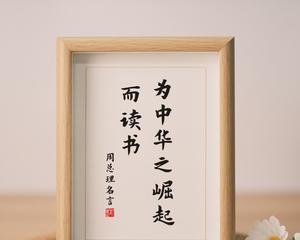 为中华之崛起
而读书
周总理名言